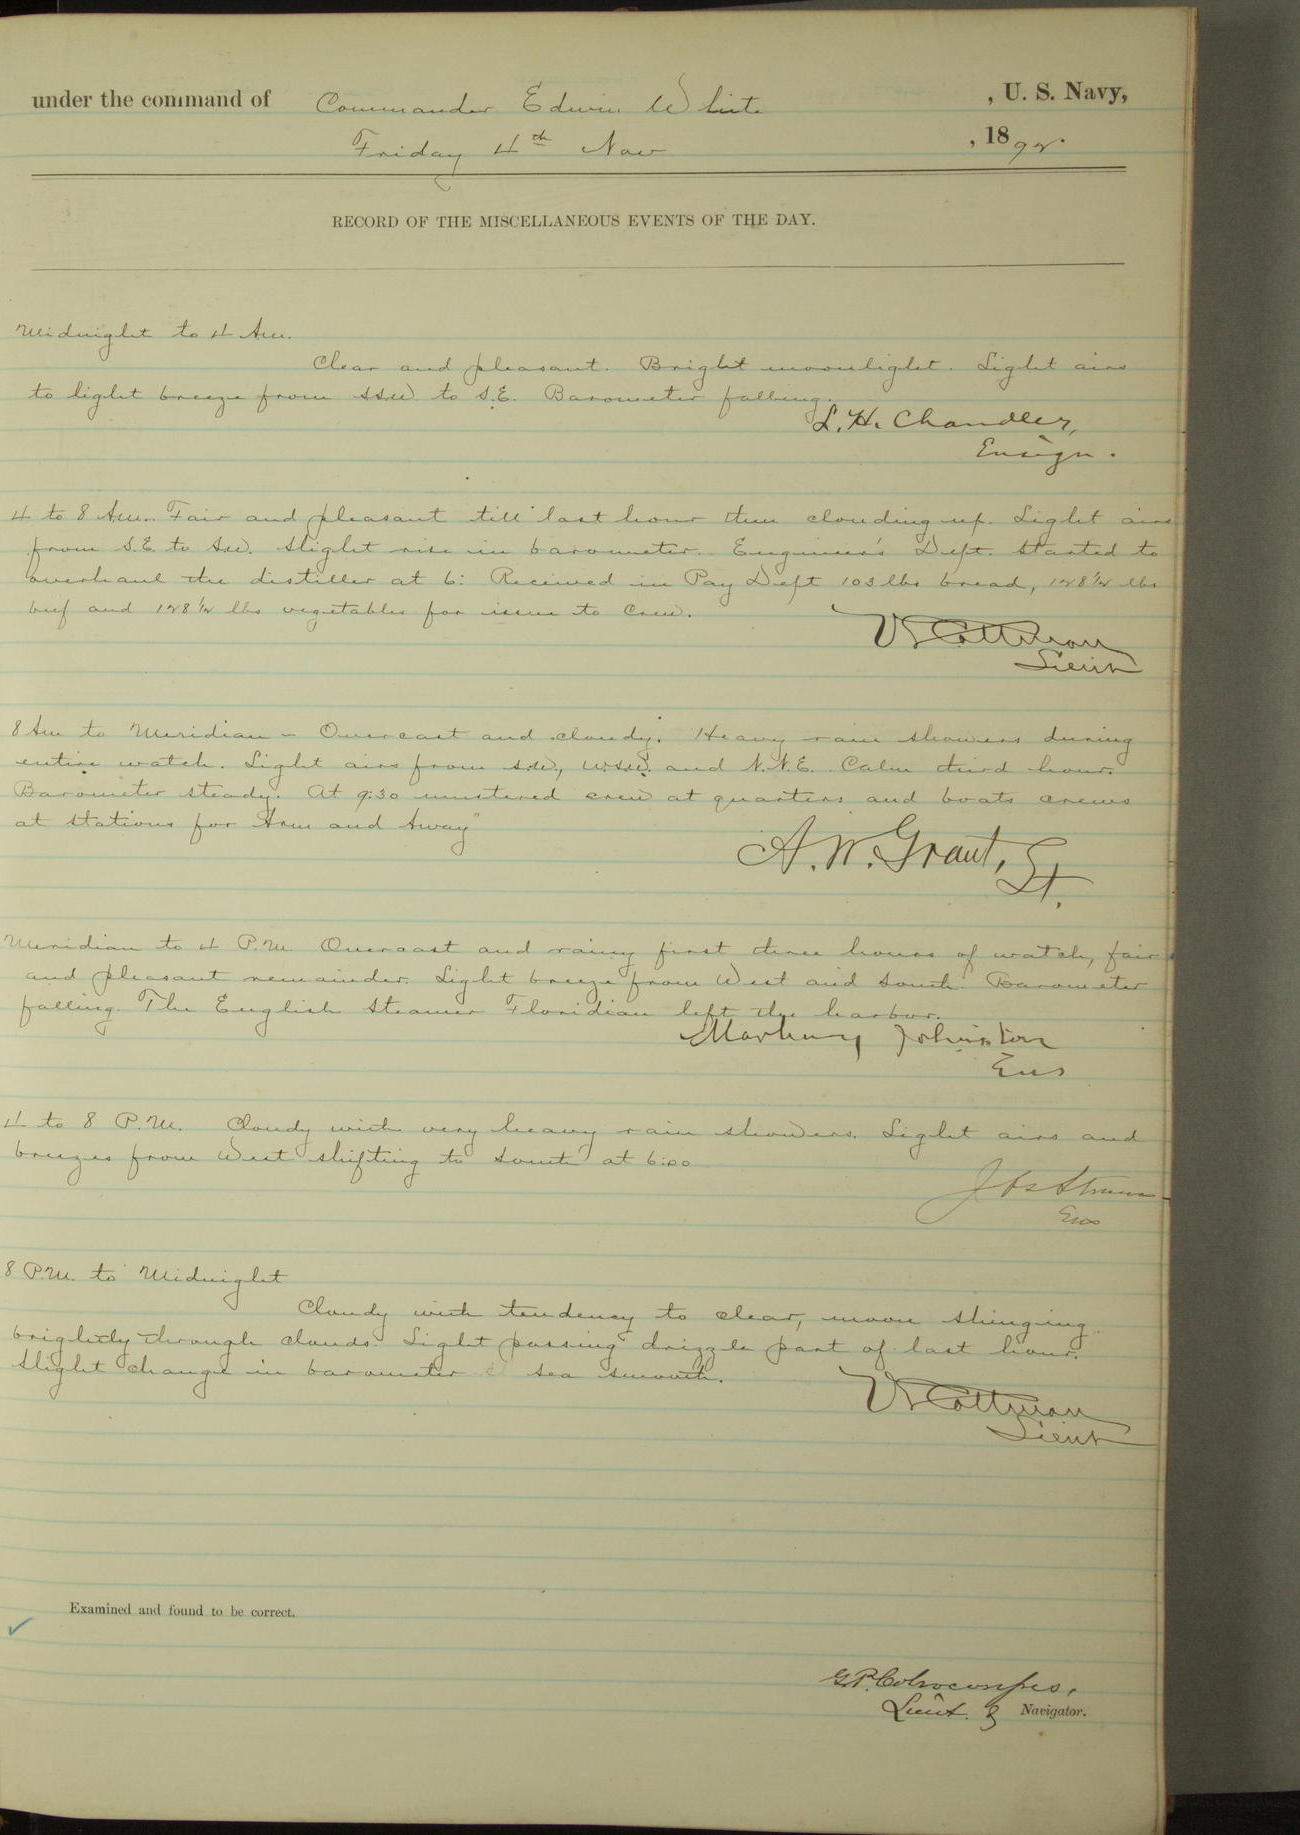 under the command of Commander Edwin White, U. S. Navy,
Friday 4th Nov, 1892.
RECORD OF THE MISCELLANEOUS EVENTS OF THE DAY.
Midnight to 4 Am.
Clear and pleasant. Bright moonlight. Light airs
to light breeze from SSW to S.E. Barometer falling.
L. H. Chandler,
Ensign.
4 to 8 Am. Fair and pleasant till last hour then clouding up. Light airs
from S.E. to SW. Slight rise in barometer. Engineer's Dept. started to
overhaul the distiller at 6: Received in Pay Dept 103 lbs bread, 128 1/2 lbs
beef and 128 1/2 lbs vegetables for issue to Crew.
V S Cottman
Lieut
8 Am to Meridian - Overcast and cloudy. Heavy rain showers during
entire watch. Light airs from S.W., W.S.W. and N.N.E. Calm third hour.
Barometer steady. At 9:30 mustered crew at quarters and boats crews
at stations for "Arm and Away"
A. W. Grant, Lt.
Meridian to 4 P.M Overcast and rainy first three hours of watch, fair
and pleasant remainder. Light breeze from West and South. Barometer
falling. The English Steamer Floridian left the harbor.
Marbury Johnston
Ens
4 to 8 P.M. Cloudy with very heavy rain showers. Light airs and
breezes from West shifting to South at 6:00
Jos Strauss
Ens
8 P.M. to Midnight
Cloudy with tendency to clear, moon shinging
brightly through clouds. Light passing drizzle part of last hour.
Slight change in barometer sea smooth.
V S Cottman
Lieut
Examined and found to be correct.
G.P. Colvocoresses,
Lieut. & Navigator.